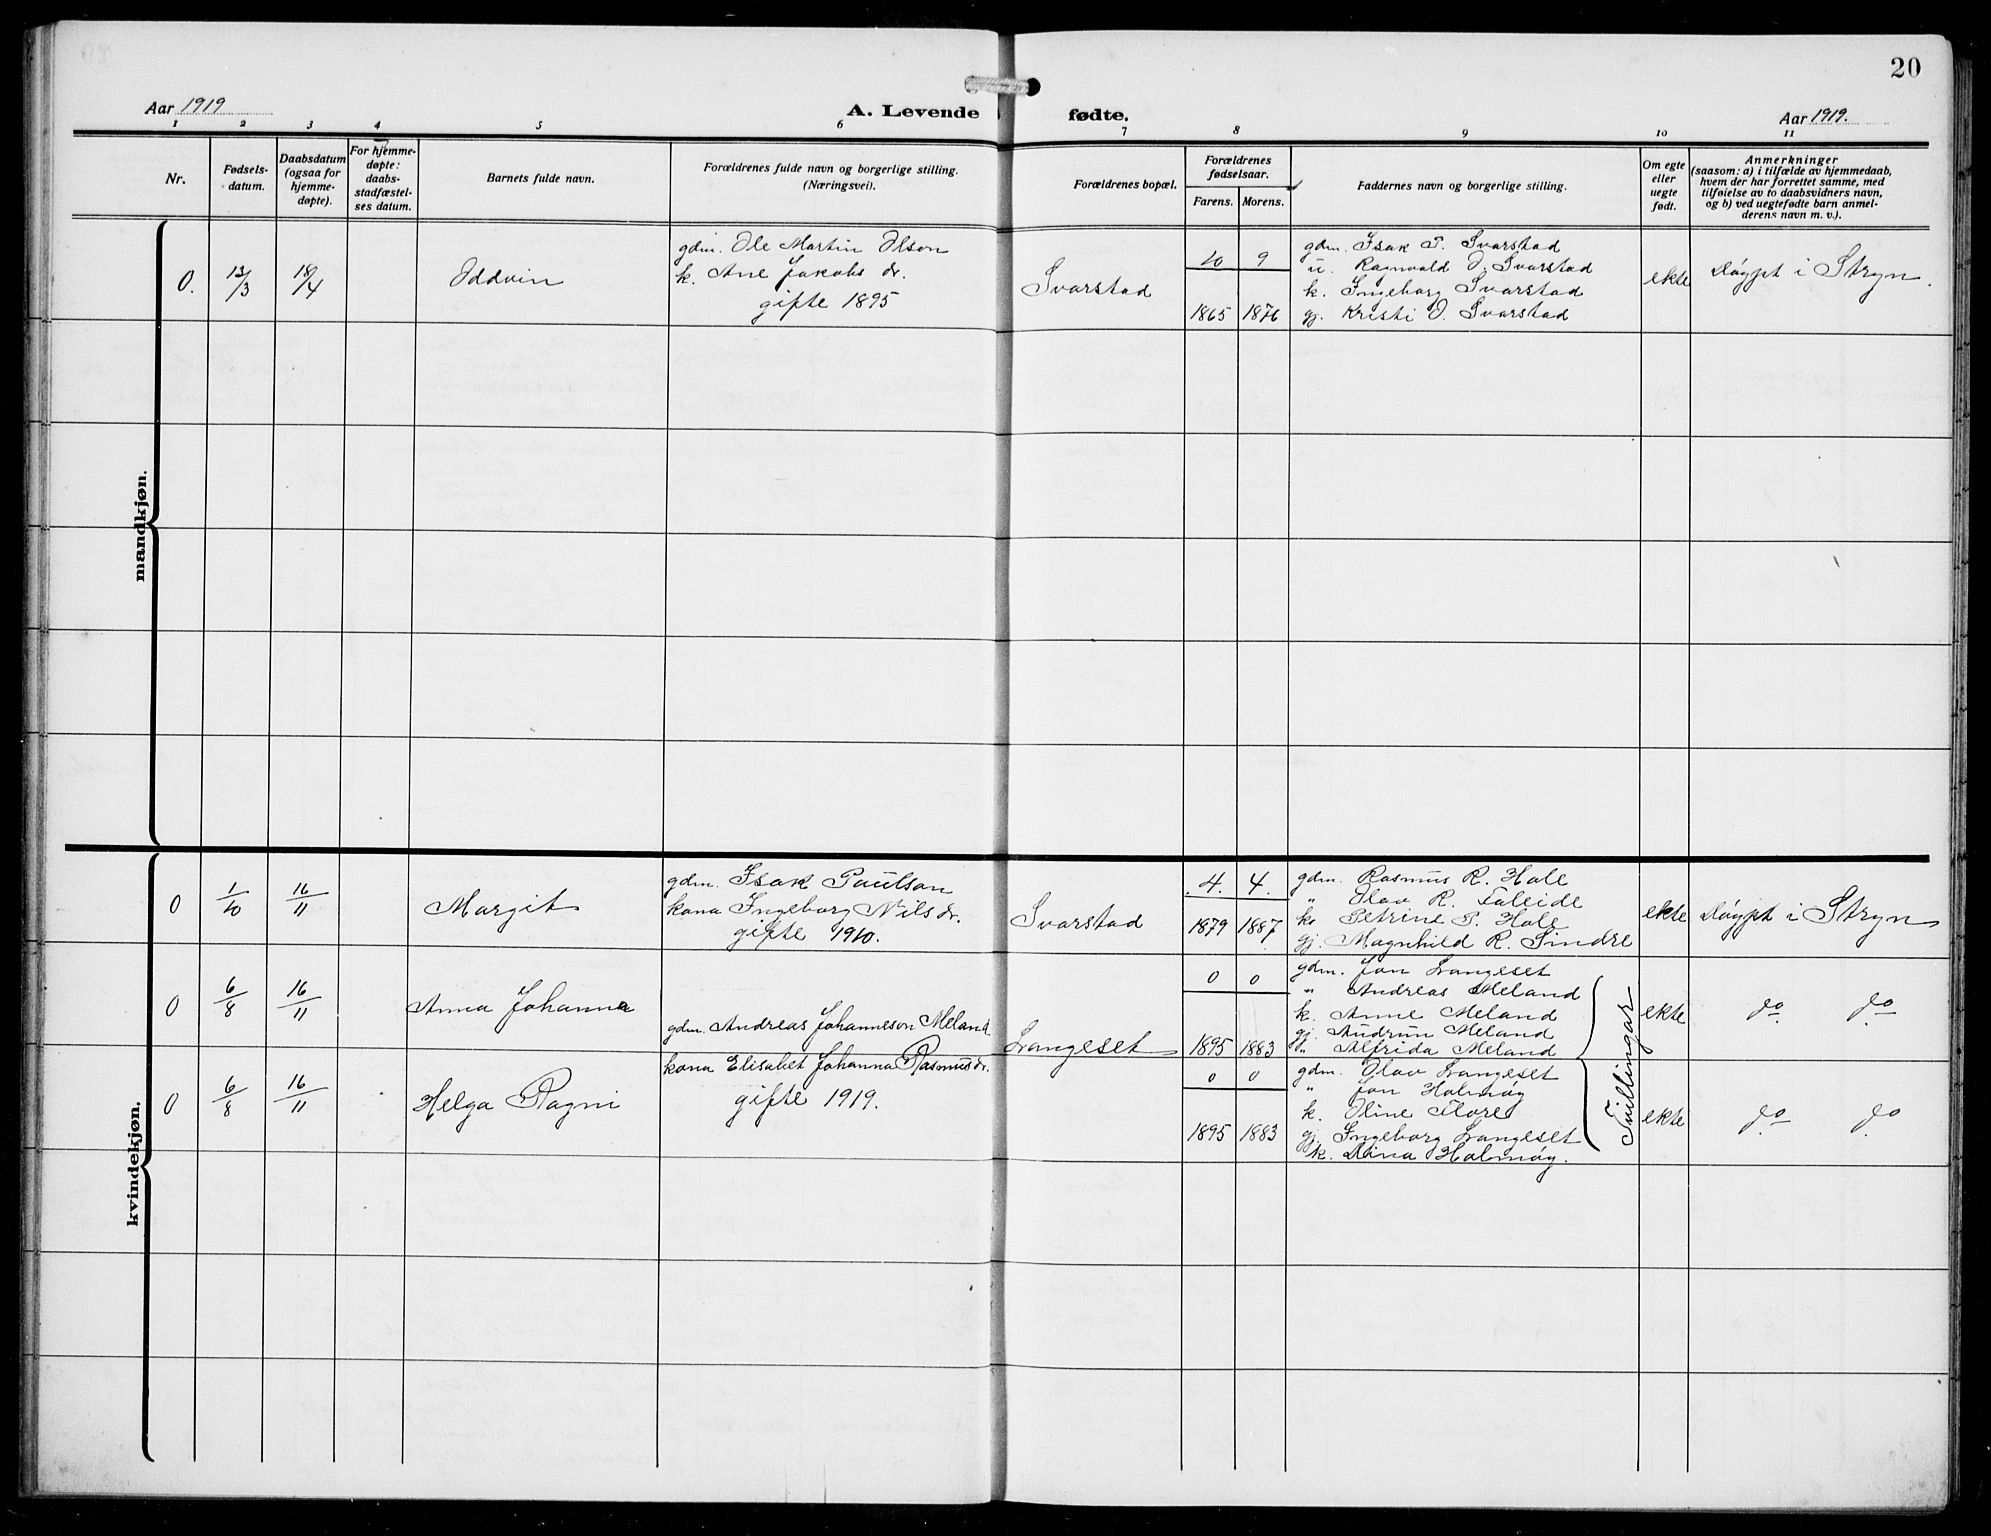 20
Aar 1919
A. Levende fødte.
Aar 1919.
1 2 3 4 5 6 7 8 9 10 11
Nr.
Fødsels-
datum.
Daabsdatum
(ogsaa for
hjemme-
døpte).
For hjemme-
døpte:
daabs-
stadfæstel-
ses datum.
Barnets fulde navn.
Forældrenes fulde navn og borgerlige stilling.
(Næringsvei).
Forældrenes bopæl.
Forældrenes
fødselsaar.
Farens. Morens.
Faddernes navn og borgerlige stilling.
Om egte
eller
uegte
født.
Anmerkninger
(saasom: a) i tilfælde av hjemmedaab,
hvem der har forrettet samme, med
tilføielse av to daabsvidners navn,
og b) ved uegtefødte barn anmel-
derens navn m. v.).
mandkjøn.
0. 13/3 18/4
Oddvin
gdm. Ole Martin Olson
k. Ane Jakobs dr.
gifte 1895
Svarstad
10 9
1865 1876
gdm. Isak P. Svarstad
u. Ragnvald O. Svarstad
k. Ingeborg Svarstad
gj. Kristi O. Svarstad
ekte
Døypt i Stryn.
kvindekjøn.
0 1/10 16/11
Margit
gdm. Isak Paulson
kona Ingeborg Nils dr.
gifte 1910.
Svarstad
4. 4.
1879 1887
gdm. Rasmus R. Hole
" Olav R. Faleide
k. Petrine P. Hole
gj. Magnhild R. Sindre
ekte
Døypt i Stryn
0 6/8 16/11
Anna Johanna
gdm. Andreas Johanneson Meland
kona Elisabet Johanna Rasmus dr.
gifte 1919.
Langeset
0 0
1895 1883
gdm. Jon Langeset
" Andreas Meland
k. Anne Meland
gj. Gudrun Meland
" Alfrida Meland
Tvillingar
ekte
do do
0 6/8 16/11
Helga Ragni
0 0
1895 1883
gdm. Olav Langeset
" Jon Holmøy
k. Oline Flore
gj. Ingeborg Langeset
k. Dina Holmøy.
ekte
do do